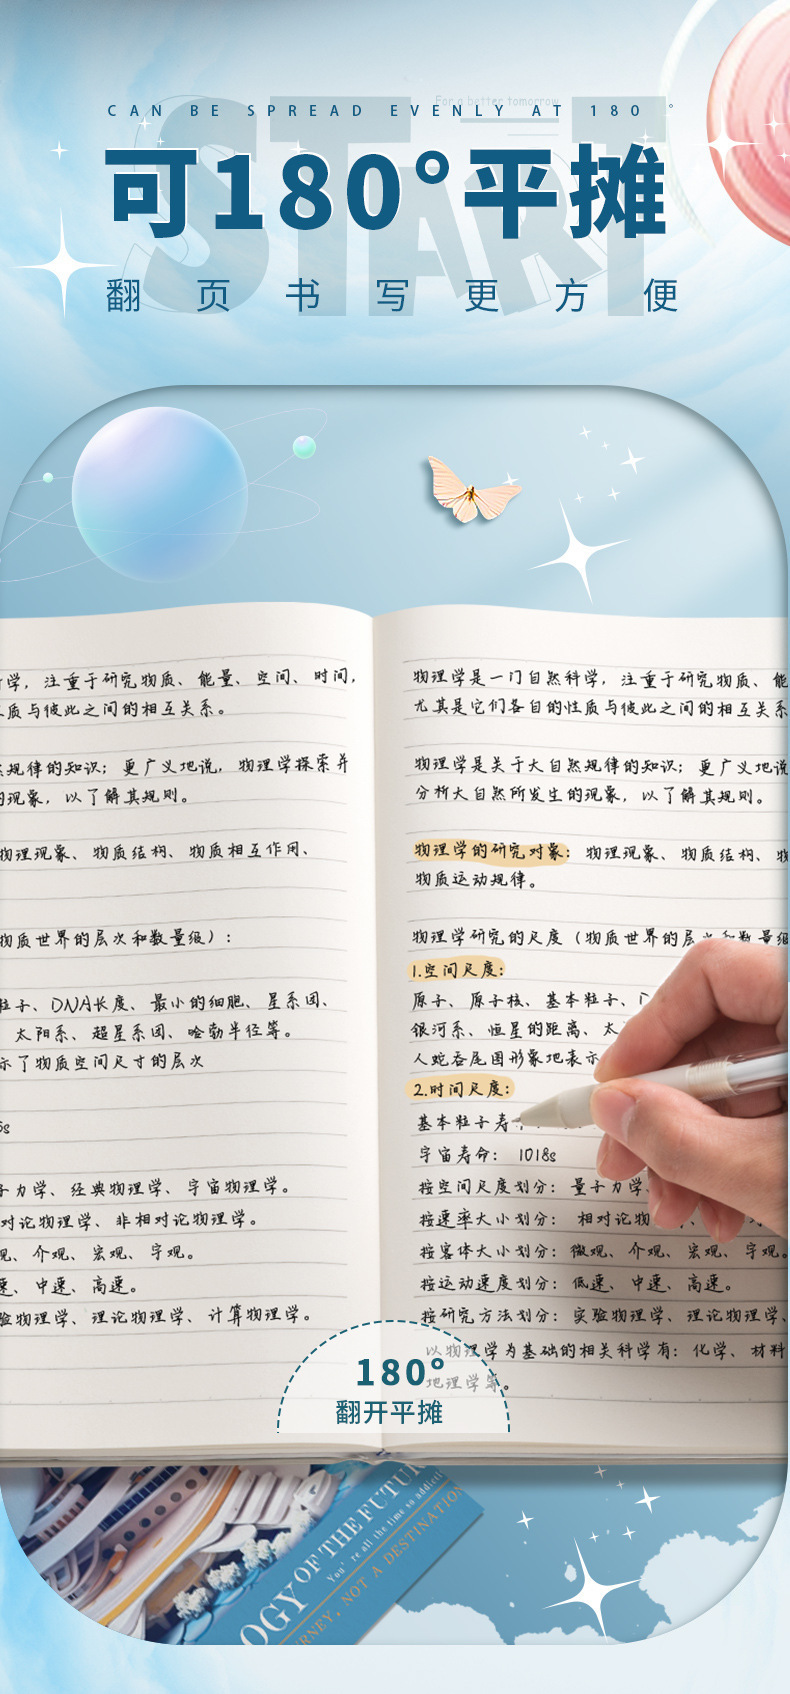 For a better tomorrow
CAN BE SPREAD EVENLY AT 180°
START
可180°平摊
翻页书写更方便
学，注重于研究物质、能量、空间、时间，
质与彼此之间的相互关系。
规律的知识；更广义地说，物理学探索并
的现象，以了解其规则。
物理现象、物质结构、物质相互作用、
物质世界的层次和数量级）：
粒子、DNA长度、最小的细胞、星系团、
太阳系、超星系团、哈勃半径等。
示了物质空间尺寸的层次
s
子力学、经典物理学、宇宙物理学。
对论物理学、非相对论物理学。
观、介观、宏观、宇观。
速、中速、高速。
验物理学、理论物理学、计算物理学。
物理学是一门自然科学，注重于研究物质、能
尤其是它们各自的性质与彼此之间的相互关系
物理学是关于大自然规律的知识；更广义地说
分析大自然所发生的现象，以了解其规则。
物理学的研究对象：物理现象、物质结构、物
物质运动规律。
物理学研究的尺度（物质世界的层次和数量级
1.空间尺度：
原子、原子核、基本粒子、
银河系、恒星的距离、太
人蛇吞尾图形象地表示
2.时间尺度：
基本粒子寿
宇宙寿命： 1018s
按空间尺度划分：量子力学、
按速率大小划分： 相对论物
按客体大小划分：微观、介观、宏观、宇观。
按运动速度划分：低速、中速、高速。
按研究方法划分：实验物理学、理论物理学、
以物理学为基础的相关科学有：化学、材料
地理学等。
180°
翻开平摊
OGY OF THE FUTUR
You're all the time so addicted
RNEY, NOT A DESTINATION